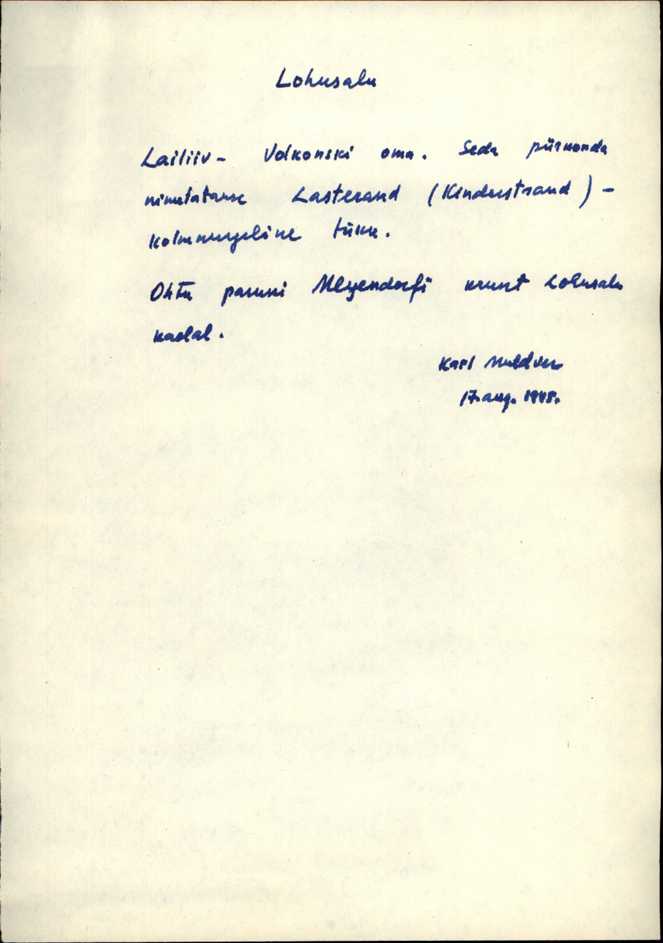 Lohusalu
Lailiiv - Volkonski oma. Seda piirkonda
nimetatakse Lasterand (Kinderstrand) -
kolmnurgeline tükk.
Ohtu paruni Meyendorfi krunt Lohusalu
kaldal.
Karl Muldver
17. aug. 1985.